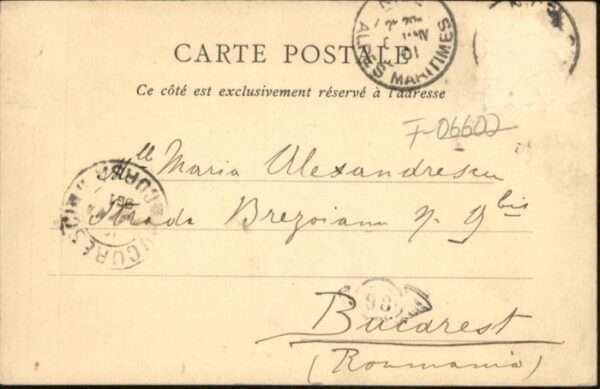 CARTE POSTALE
Ce côté est exclusivement réservé à l'adresse
ALPES MARITIMES
F-06602
Mlle Maria Alexandrescu
Strada Brezoianu No 9 bis
BUCURESCI
98
Bucarest
(Roumania)